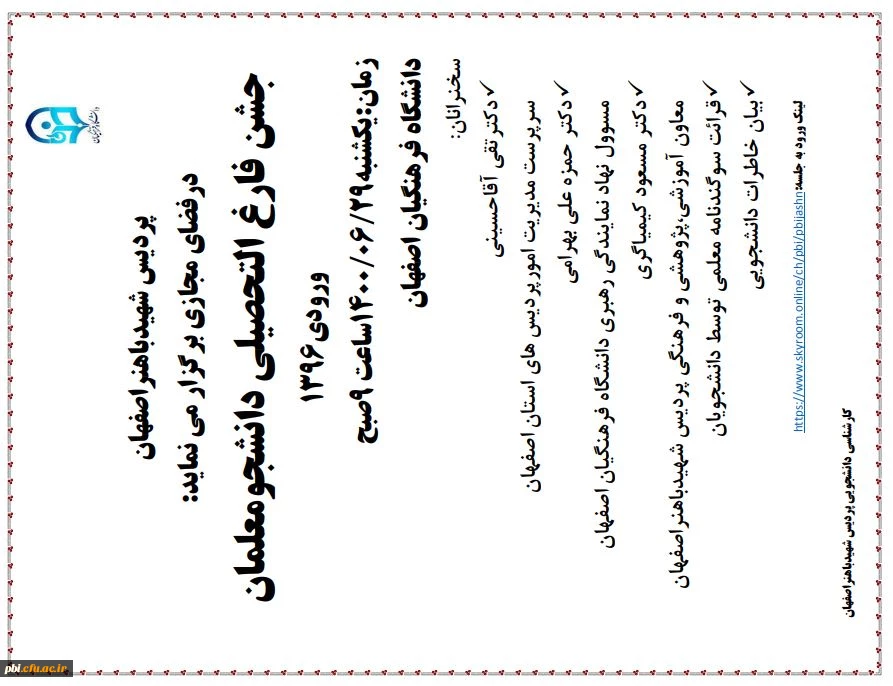 دانشگاه فرهنگیان
پردیس شهیدباهنراصفهان
درفضای مجازی برگزار می نماید:
جشن فارغ التحصیلی دانشجومعلمان
ورودی۱۳۹۶
زمان:یکشنبه۱۴۰۰/۰۶/۲۹ساعت ۹صبح
دانشگاه فرهنگیان اصفهان
سخنرانان:
✓دکترتقی آقاحسینی
سرپرست مدیریت امورپردیس های استان اصفهان
✓دکتر حمزه علی بهرامی
مسوول نهاد نمایندگی رهبری دانشگاه فرهنگیان اصفهان
✓دکتر مسعود کیمیاگری
معاون آموزشی،پژوهشی و فرهنگی پردیس شهیدباهنراصفهان
✓قرائت سوگندنامه معلمی توسط دانشجویان
✓بیان خاطرات دانشجویی
لینک ورود به جلسه:https://www.skyroom.online/ch/pbi/pbijashn
کارشناسی دانشجویی پردیس شهیدباهنراصفهان
pbi.cfu.ac.ir